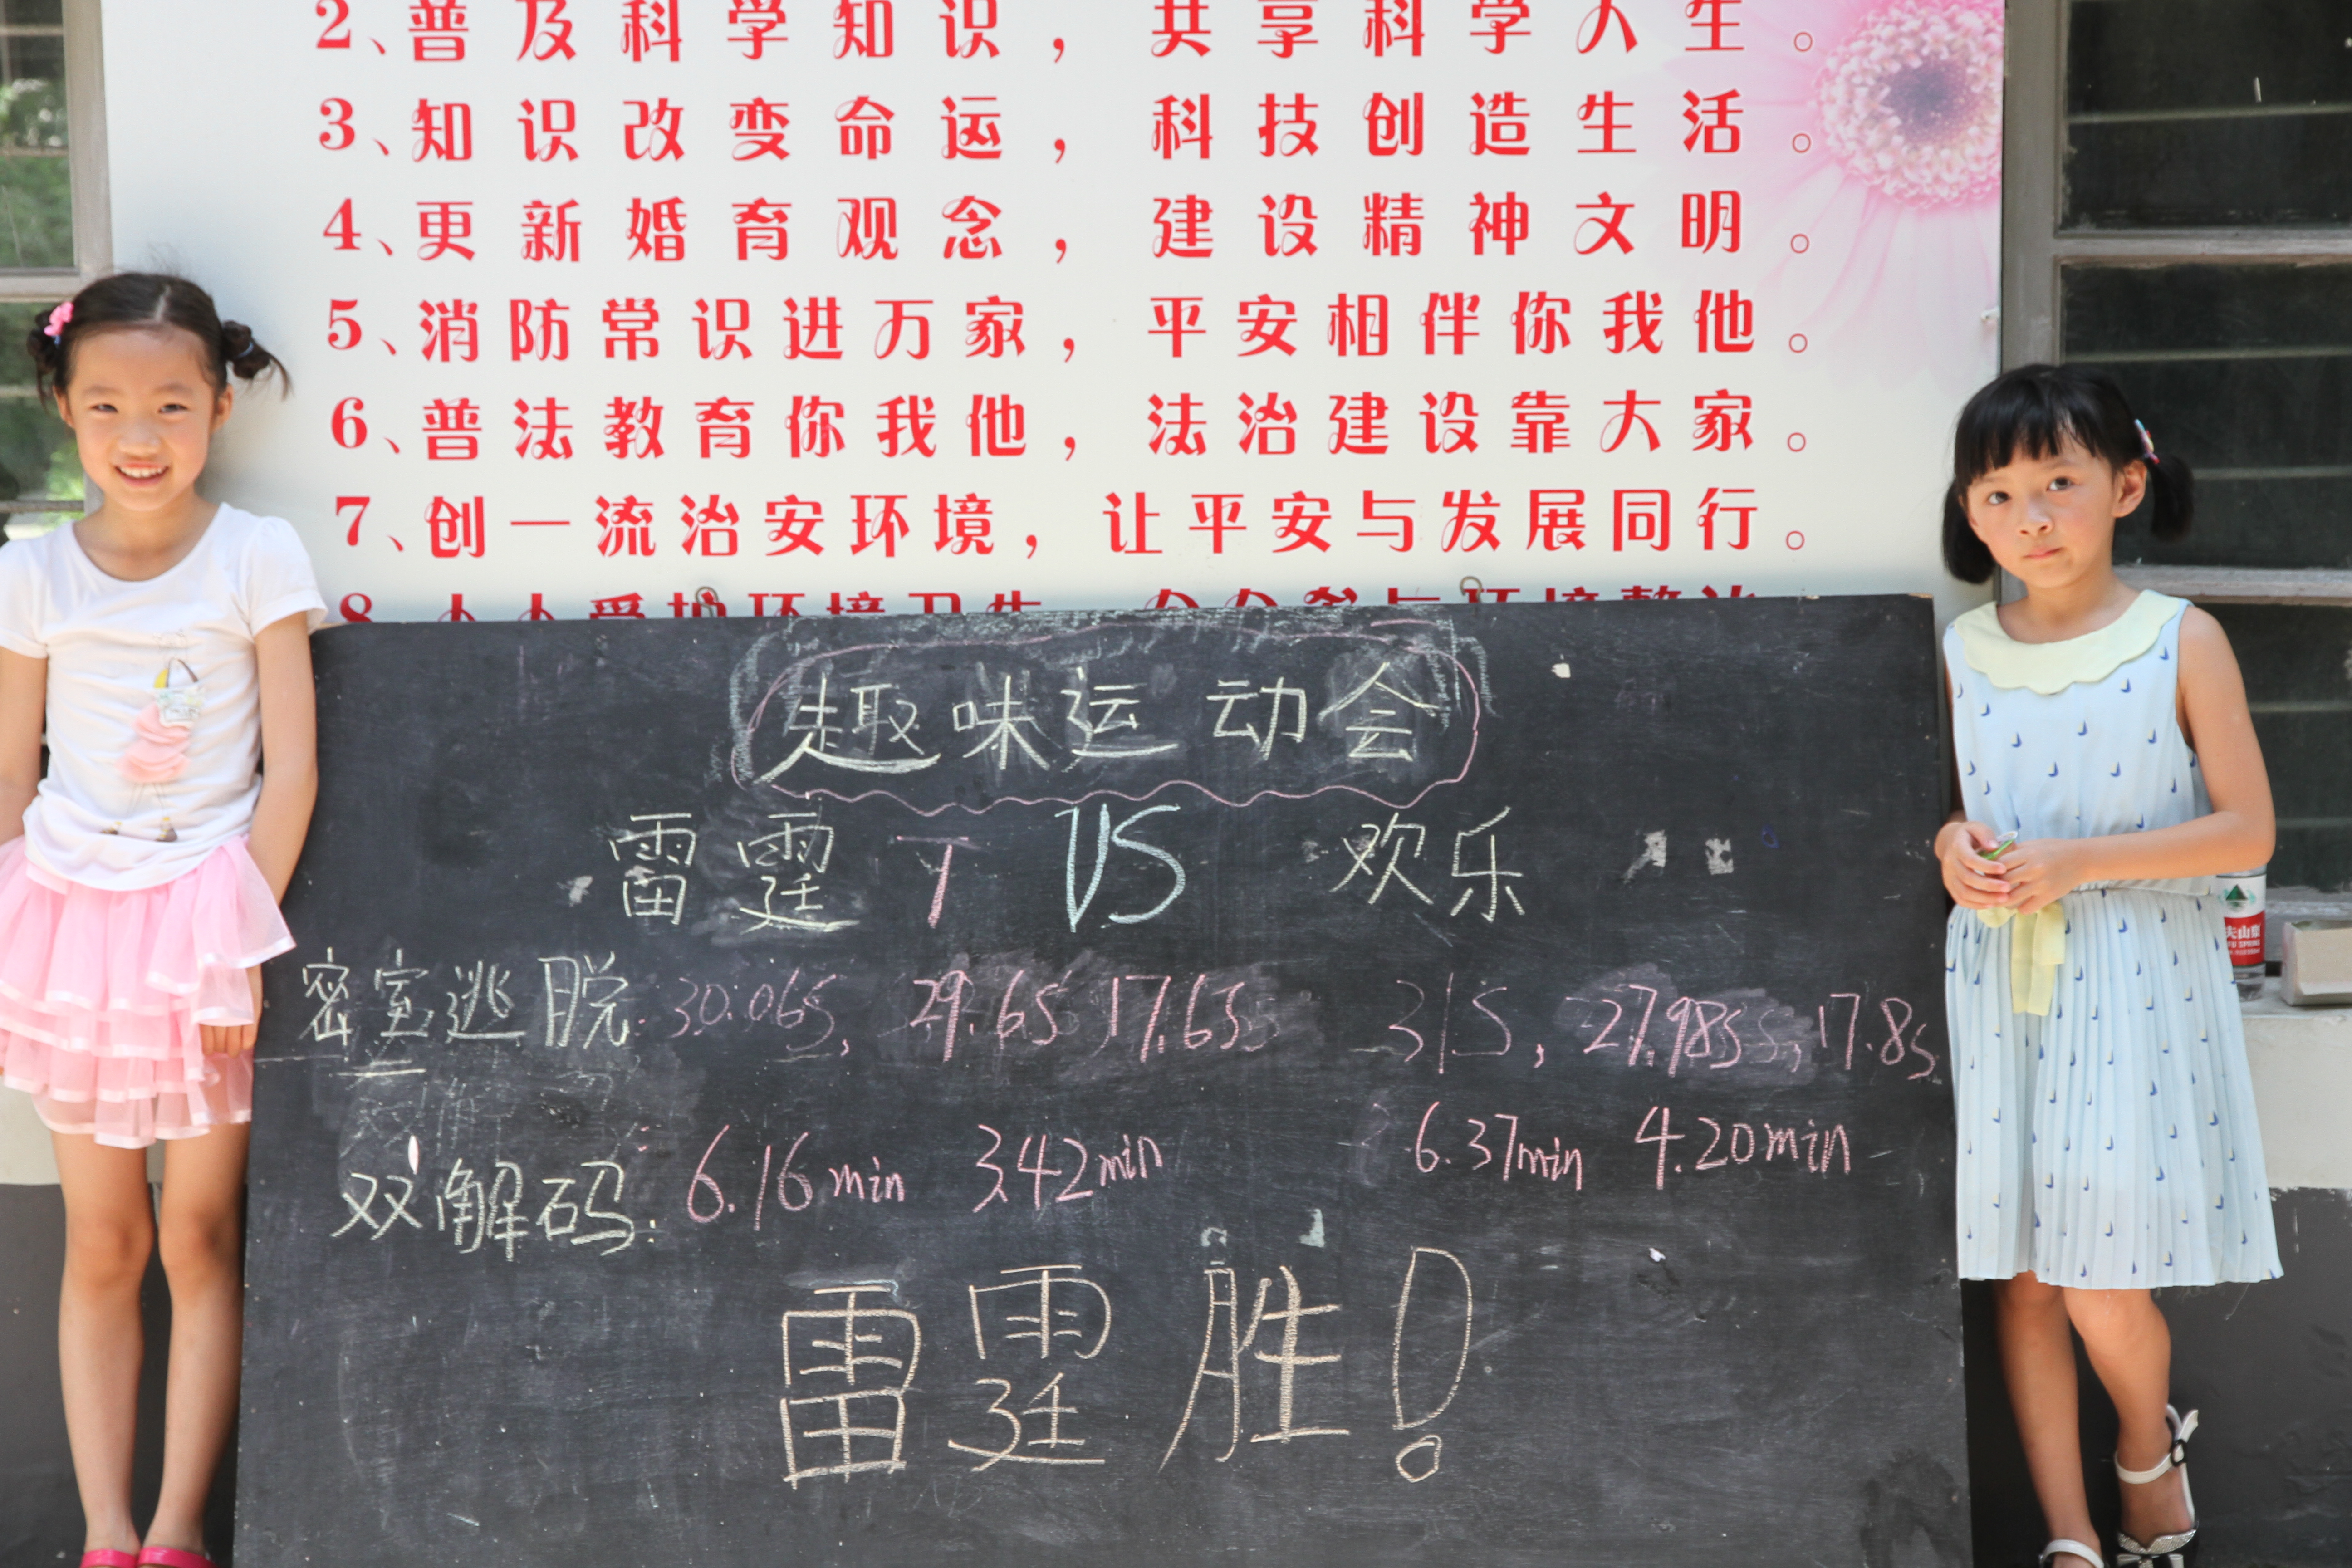 2、普及科学知识，共享科学人生。
3、知识改变命运，科技创造生活。
4、更新婚育观念，建设精神文明。
5、消防常识进万家，平安相伴你我他。
6、普法教育你我他，法治建设靠大家。
7、创一流治安环境，让平安与发展同行。
8、人人爱护环境卫生，个个参与环境整治。
趣味运动会
雷霆 T VS 欢乐
密室逃脱: 30.06s, 29.6s 17.63s 31s, 27.98s, 17.8s
双解码: 6.16min 3.42min 6.37min 4.20min
雷霆胜!
夫山泉
FU SPRING